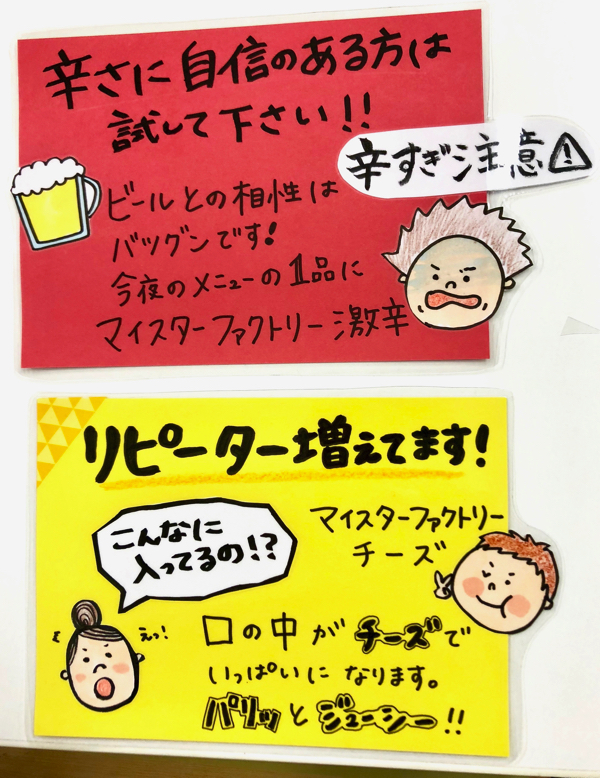 辛さに自信のある方は
試して下さい!!
辛すぎ注意
ビールとの相性は
バツグンです!
今夜のメニューの1品に
マイスターファクトリー激辛
リピーター増えてます!
こんなに
入ってるの!?
マイスターファクトリー
チーズ
えっ!
口の中がチーズで
いっぱいになります。
パリッとジューシー!!